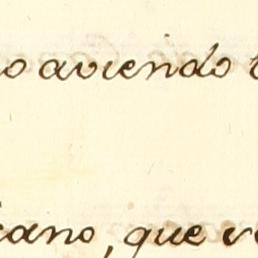 o aviendo
cano, que